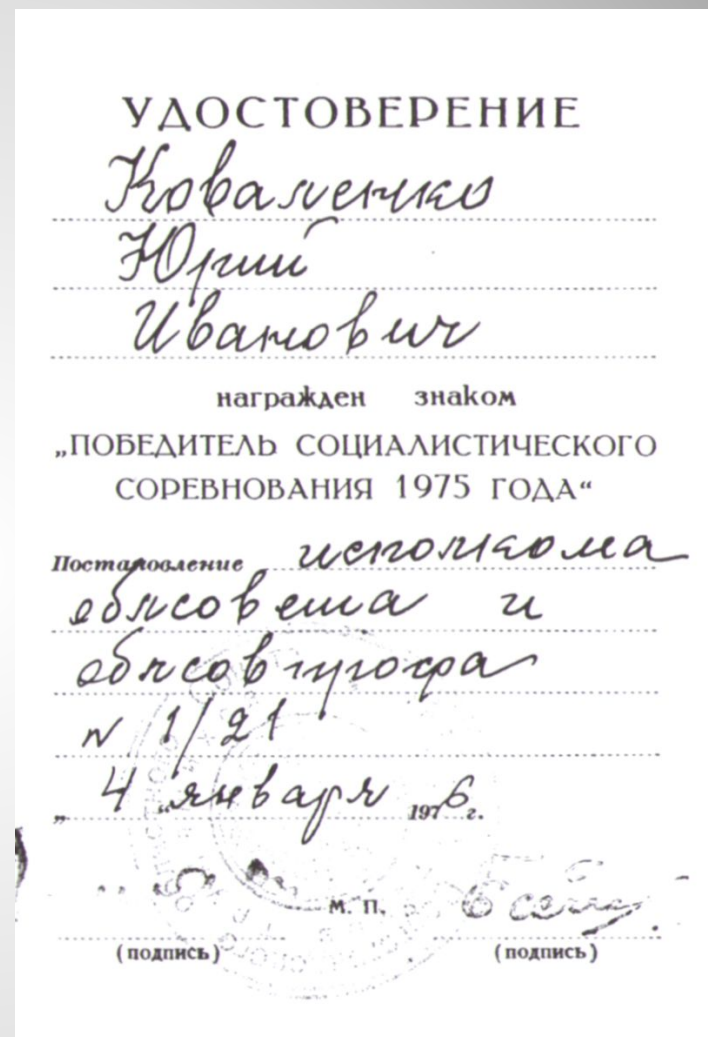 УДОСТОВЕРЕНИЕ
Коваленко
Юрий
Иванович
награжден знаком
„ПОБЕДИТЕЛЬ СОЦИАЛИСТИЧЕСКОГО
СОРЕВНОВАНИЯ 1975 ГОДА“
Постановление исполкома
облсовета и
облсовпрофа
N 1/21
„ 4 „ января 1976 г.
М. П.
(подпись) (подпись)